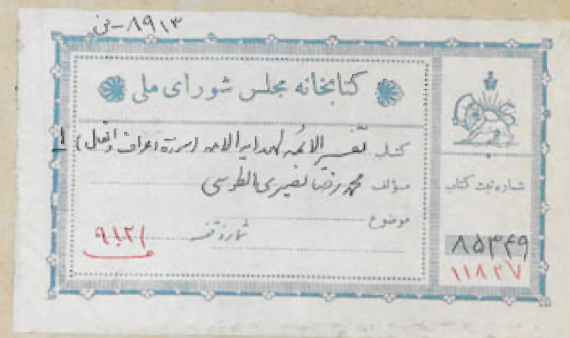 ۸۹۱۳ - فی
کتابخانه مجلس شورای ملی
کتاب تفسیر الائمه لهدایه الامه (سورة اعراف و انفال) ۱
مؤلف محمد رضا نصیری الطوسی
موضوع
شماره قفسه ۹۱۲۱
شماره ثبت کتاب
۸۵۳۴۹
۱۱۸۲۷